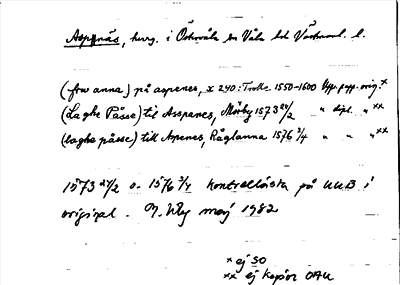 Aspnäs, herrg. i Östervåla sn Våla hd Västmanl. l.
(frw anna) på aspenes, x 240: Trolle 1550-1600 Upp. papp. orig. x
(Laghe Påsse) til Asspanes, Mörby 1573 24/2 " dipl. " xx
(laghe påsse) till Aspenes, Råglanna 1576 3/4 " " " xx
1573 24/2 o. 1576 3/4 kontrollästa på UUB i
original. N. Wly maj 1982
x ej SO
xx ej kopior OAU